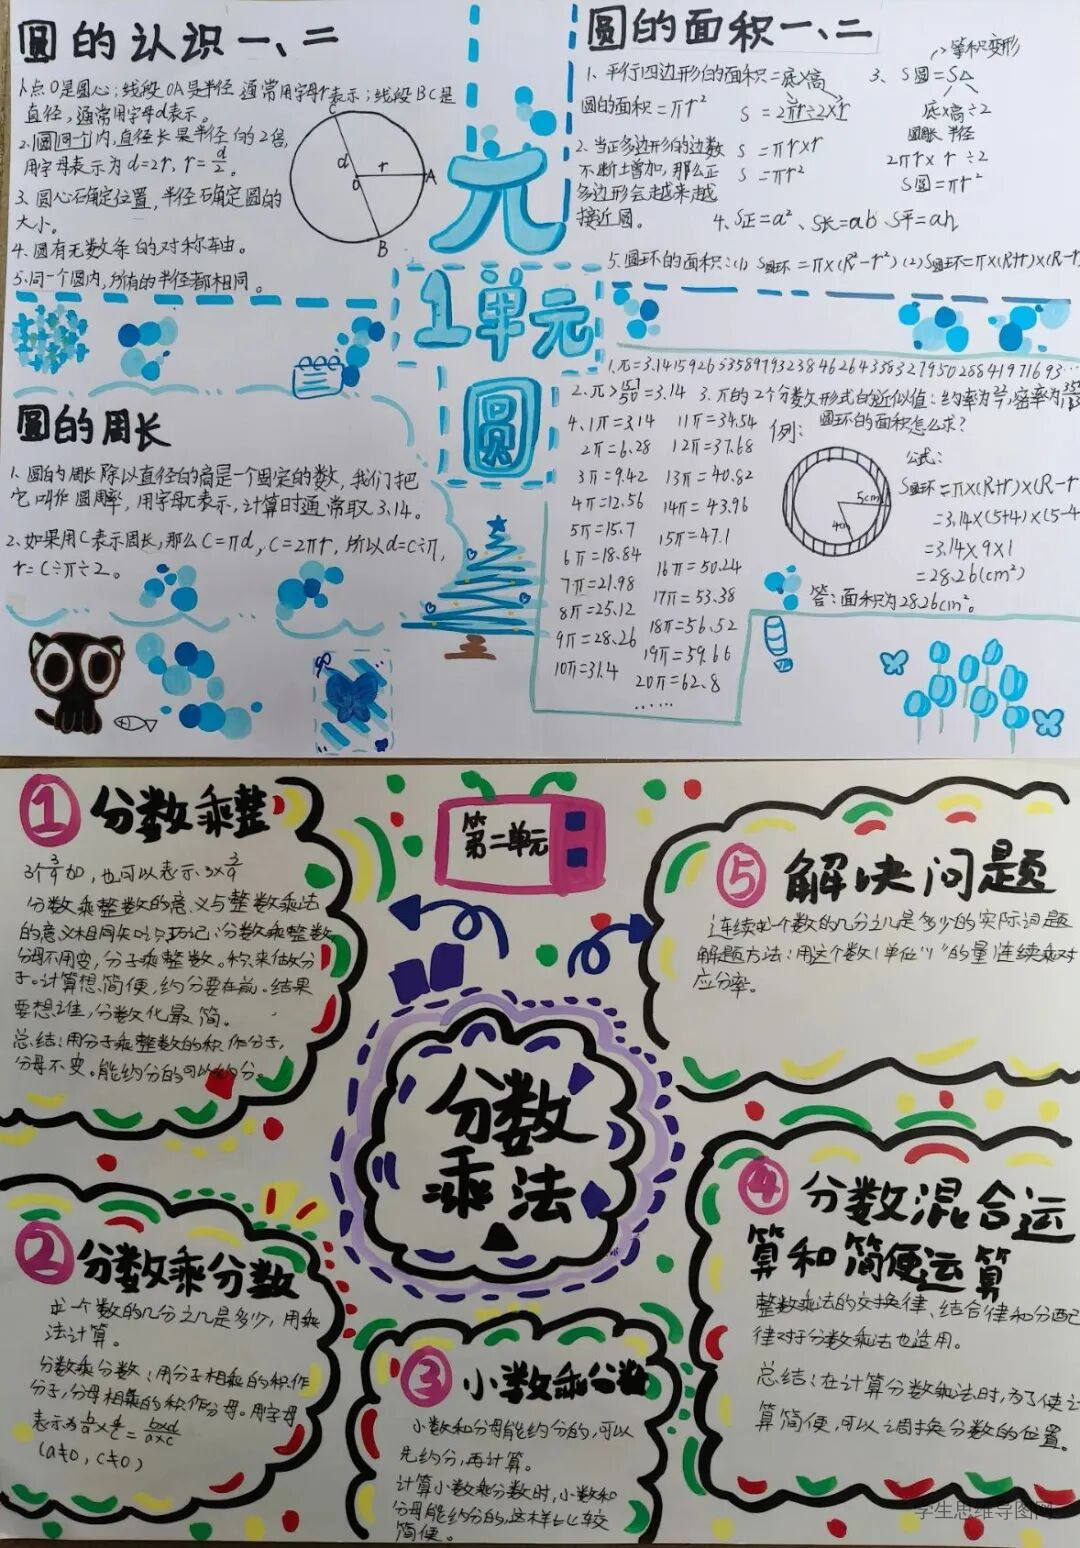 圆的认识一、二
1.点O是圆心;线段OA是半径 通常用字母r表示;线段BC是
直径,通常用字母d表示。
2.(圆)同一个内,直径长是半径的2倍,
用字母表示为d=2r,r=d/2。
3.圆心确定位置,半径确定圆的
大小。
4.圆有无数条的对称轴。
5.同一个圆内,所有的半径都相同。
C
d
r
O
A
B
元
1单元
圆
圆的面积一、二
1、平行四边形的面积=底×高
圆的面积=πr²
S=2πr÷2×r
S=πr×r
S=πr²
2.当正多边形的边数
不断增加,那么正
多边形会越来越
接近圆。
3、S圆=S△
等积变形
底×高÷2
圆周长 半径
2πr×r÷2
S圆=πr²
4、S正=a²、S长=ab、S平=ah
5.圆环的面积:(1)S圆环=π×(R²-r²)(2)S圆环=π×(R+r)×(R-r
圆的周长
1、圆的周长除以直径的商是一个固定的数,我们把
它叫作圆周率,用字母π表示,计算时通常取3.14。
2、如果用C表示周长,那么C=πd,C=2πr,所以d=C÷π,
r=C÷π÷2。
1.π=3.1415926535897932384626433832795028841971693…
2.π>157/50=3.14 3.π的2个分数形式的近似值:约率为22/7,密率为355/113
4.1π=3.14 11π=34.54
2π=6.28 12π=37.68
3π=9.42 13π=40.82
4π=12.56 14π=43.96
5π=15.7 15π=47.1
6π=18.84 16π=50.24
7π=21.98 17π=53.38
8π=25.12 18π=56.52
9π=28.26 19π=59.66
10π=31.4 20π=62.8
……
例:圆环的面积怎么求?
5cm
4cm
公式:
S圆环=π×(R+r)×(R-r
=3.14×(5+4)×(5-4
=3.14×9×1
=28.26(cm²)
答:面积为28.26cm²。
第二单元
分数
乘法
1 分数乘整
3个3/4加,也可以表示3×3/4
分数乘整数的意义与整数乘法
的意义相同知识巧记:分数乘整数
分母不用变,分子乘整数。积来做分
子。计算想简便,约分要在前。结果
要想准,分数化最简。
总结:用分子乘整数的积作分子,
分母不变。能约分的可以约分。
2 分数乘分数
求一个数的几分之几是多少,用乘
法计算。
分数乘分数:用分子相乘的积作
分子,分母相乘的积作分母。用字母
表示为b/a×d/c=b×d/a×c
(a≠0,c≠0)
3 小数乘分数
小数和分母能约分的,可以
先约分,再计算。
计算小数乘分数时,小数和
分母能约分的,这样比较
简便。
4 分数混合运
算和简便运算
整数乘法的交换律、结合律和分配
律对于分数乘法也适用。
总结:在计算分数乘法时,为了使计
算简便,可以调换分数的位置。
5 解决问题
连续求一个数的几分之几是多少的实际问题
解题方法:用这个数(单位"1"的量)连续乘对
应分率。
学生思维导图网